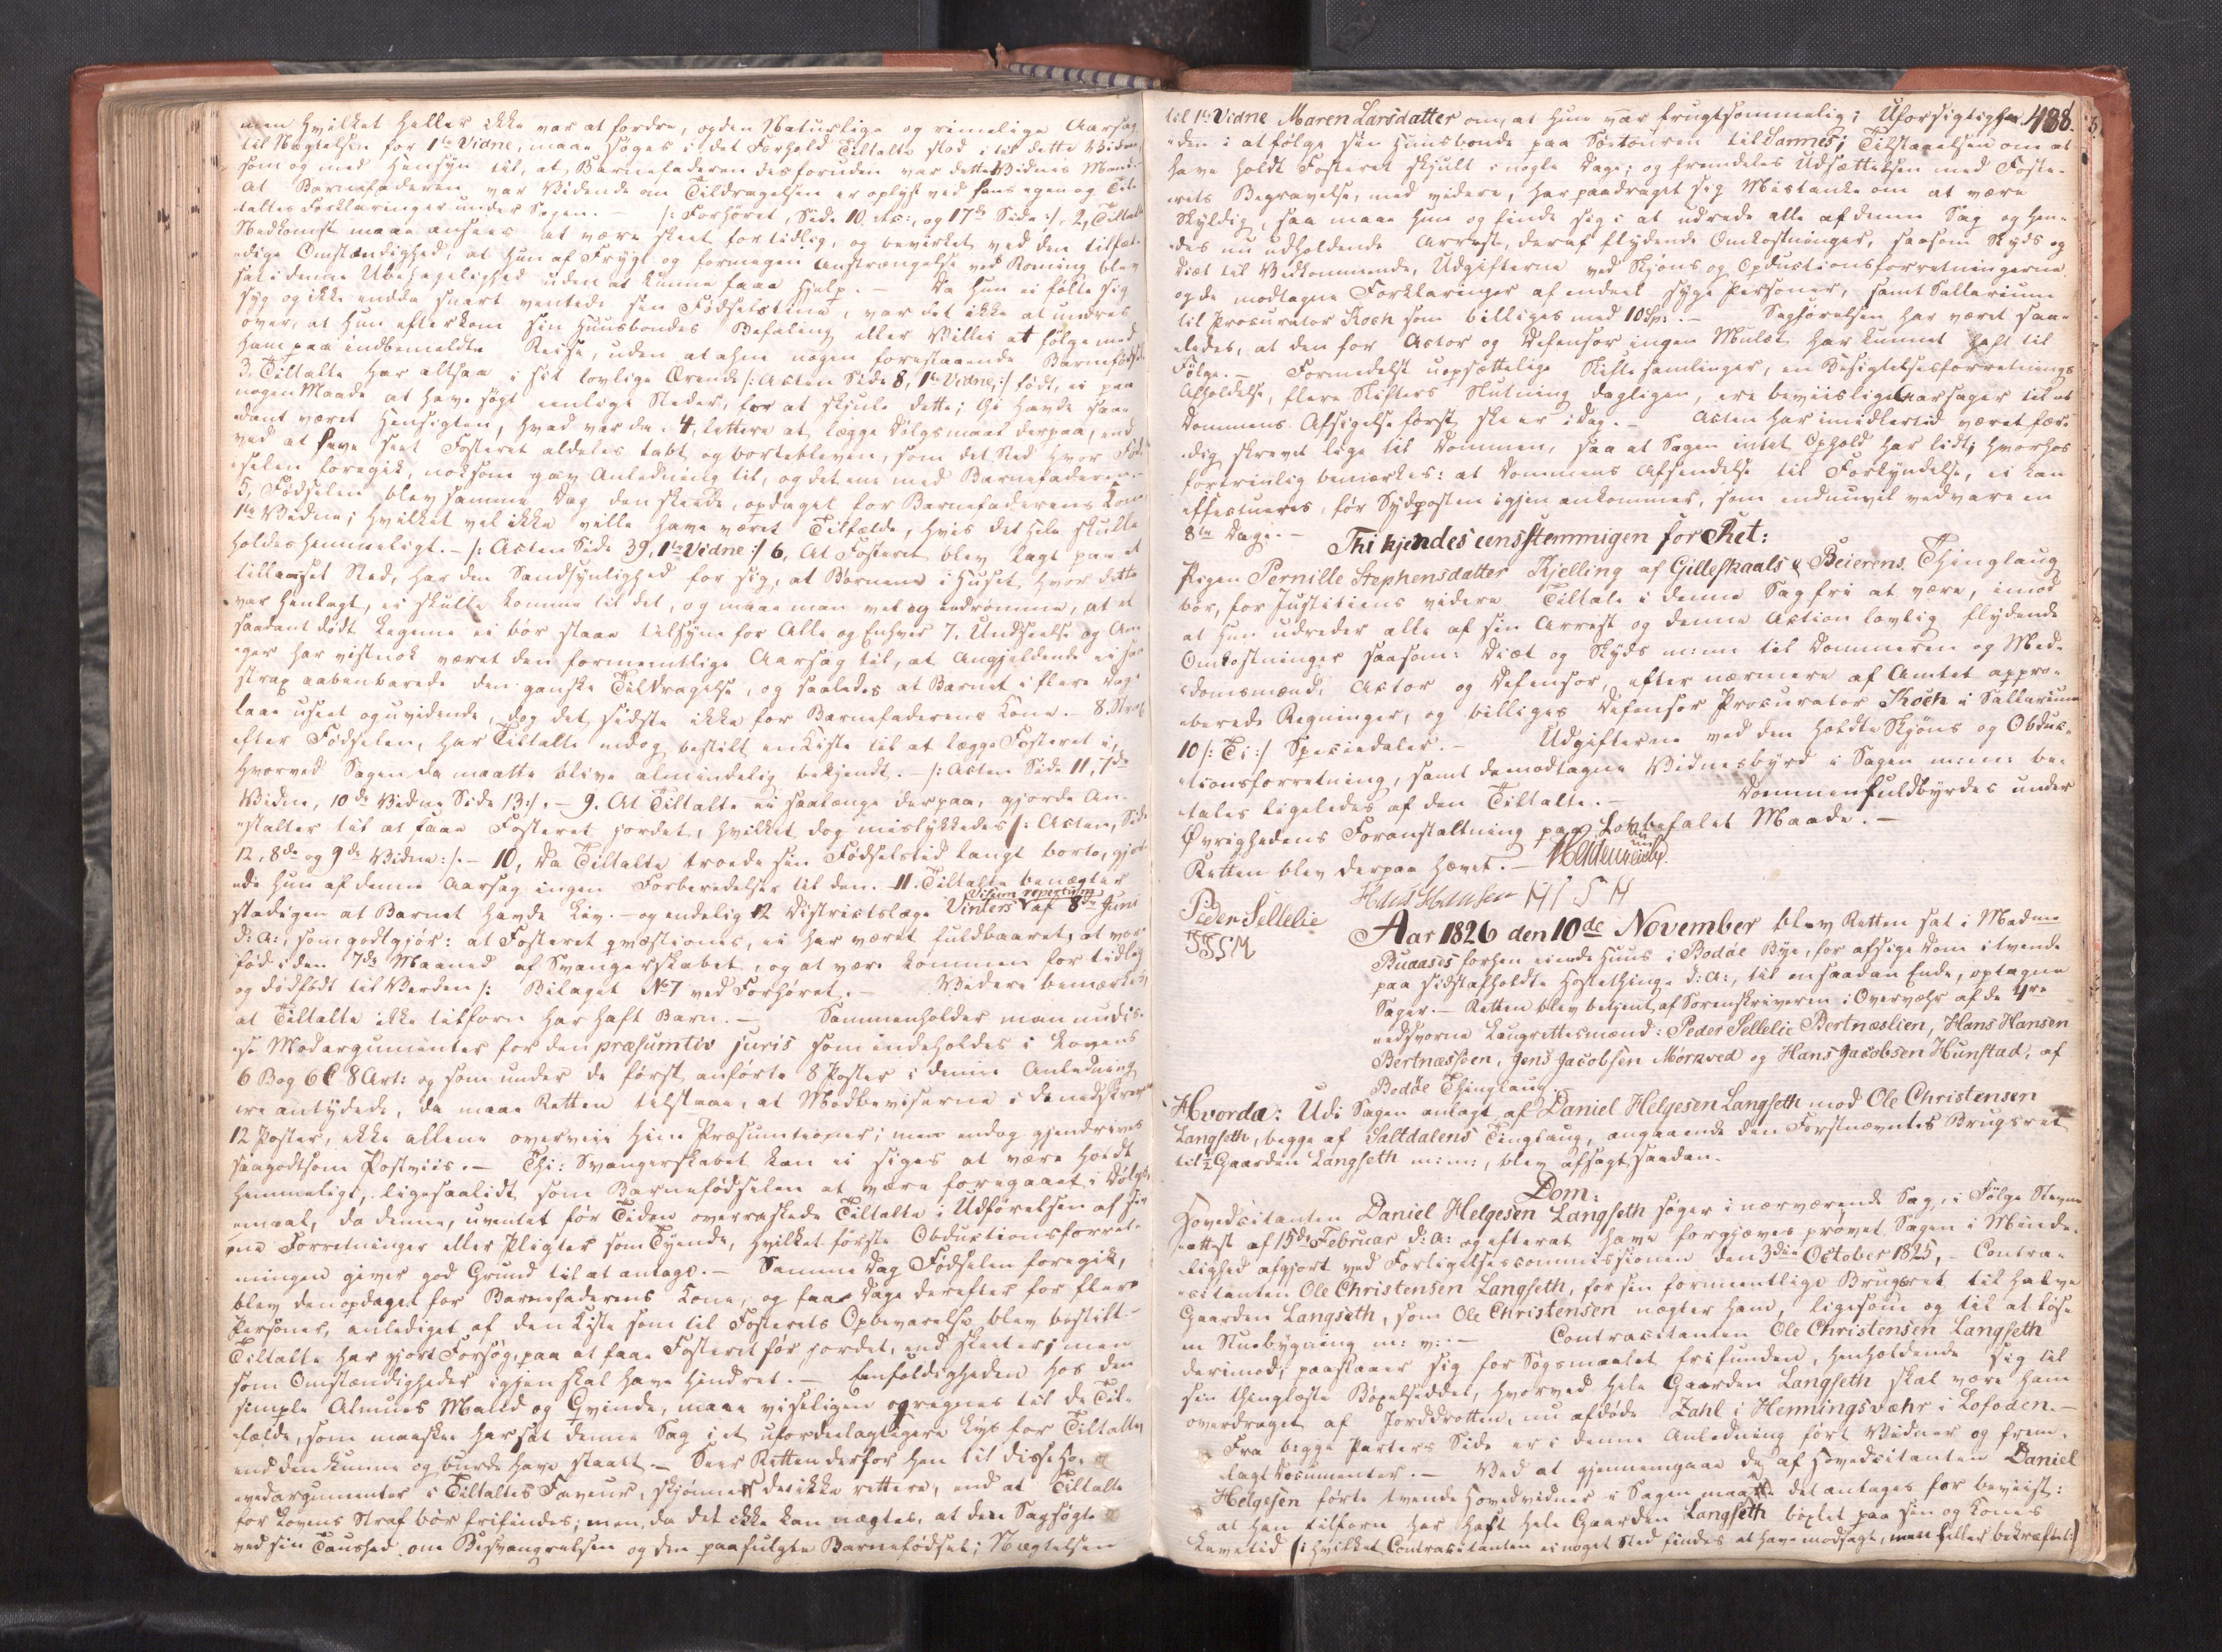 men hvilket heller ikke var at fordre, og den Naturlige og rimelige Aarsag
til Nægtelsen for 1ste Vidne, maae søges i det Forhold Tiltalte stod i til dette Vidne
som og med Hensyn til, at Barnefaderen desforuden var dette Vidnes Mand
At Barnefaderen var Vidende om Tildragelsen er oplyst ved hans egen og Til-
taltes Forklaringer under Sagen. — /: Forhøret, Side 10 etc:, og 17de Side :/. 2, Tiltaltes
Nedkomst maae ansees at være skeet for tidlig, og bevirket ved den tilfæl-
dige Omstændighed, at hun af Frygt og formegen Anstrængelse ved Roning blev
sat i denne Ubehagelighed uden at kunne faae Hjelp. — Da hun ei følte sig
syg og ikke endda snart ventede sin Fødselstime, var det ikke at undres
over, at hun efterkom sin Huusbondes Befaling eller Villie at følge med
ham paa indbemeldte Reise, uden at ahne nogen forestaaende Barnefødsel
3. Tiltalte har altsaa i sit lovlige Ærende /: Acten Side 8, 1ste Vidne, :/ født, ei paa
nogen Maade at have søgt eenlige Steder, for at skjule dette; Thi havde saa-
dant været Hensigten, hvad var da. 4, lettere at lægge Dølgsmaal derpaa, end
ved at have seet Fosteret aldeles tabt og bortebleven, som det Sted hvor Fød-
selen foregik, noksom gav Anledning til, og det ene med Barnefaderen. —
5, Fødselen blev samme Dag den skeede, opdaget for Barnefaderens Kone
1ste Vidne; hvilket vel ikke ville have været Tilfælde, hvis det hele skulle
holdes hemmeligt. — /: Acten Side 39, 1ste Vidne :/ 6, At Fosteret blev lagt paa et
tillaaset Sted, har den Sandsynlighed for sig, at Børnene i Huset, hvor dette
var henlagt, ei skulle komme til det, og maae man vel og indrømme, at et
saadant dødt Legeme ei bør staae tilsyne for Alle og Enhver 7. Undseelse og An-
ger har vistnok været den formentlige Aarsag til, at Angjeldende ei har
strax aabenbarede den ganske Tildragelse, og saaledes at Barnet i flere Dage
laae useet og uvidende, dog det sidste ikke for Barnefaderens Kone. 8. Strax
efter Fødselen, har Tiltalte endog bestilt en Kiste til at lægge Fosteret i,
hvorved Sagen da maatte blive almindelig bekjendt. — /: Acten Side 11, 7de
Vidne, 10de Vidne Side 13 :/. — 9. At Tiltalte ei saalænge derpaa, gjorde An-
stalter til at faae Fosteret jordet, hvilket dog mislykkedes /: Acten, Side
12, 8de og 9de Vidne :/. — 10, Da Tiltalte troede sin Fødselstid langt borte, gjor-
de hun af denne Aarsag ingen Forberedelser til den. 11. Tiltalte benægter
stadigen at Barnet havde Liv. — og endelig 12 Districtslæge Vinters Visum repertum af 8de Juni
d: A:, som godtgjør: at Fosteret qvæstionis, ei har været fuldbaaret, at være
fød i den 7de Maaned af Svangerskabet, og at være kommen for tidlig
og dødfødt til Verden /: Bilaget No 7 ved Forhøret. — Videre bemærkes
at Tiltalte ikke tilforn har haft Barn. — Sammenholder man nu dis-
se Modargumenter for den præsumtio juris som indeholdes i Lovens
6 Bog 6 C 8 Art: og som under de først anførte 8 Poster i denne Anledning
ere antydede, da maae Retten tilstaae, at Modbeviserne i de nedskrevne
12 Poster, ikke allene overveie hine Præsumtioner; men endog gjendrives
saagodtsom Postviis. — Thi: Svangerskabet kan ei siges at være holdt
hemmeligt, ligesaalidt som Barnefødselen at være foregaaet i Dølgs-
maal, da denne, uventet før Tiden overraskede Tiltalte i Udførelsen af hen-
ne Forretninger eller Pligter som Tyende, hvilket første Obductionsforret-
ningen giver god Grund til at antage. — Samme Dag Fødselen foregik,
blev den opdaget for Barnefaderens Kone, og faae Dage derefter for flere
Personer, anlediget af den Kiste som til Fosterets Opbevarelse blev bestilt —
Tiltalte har gjort Forsøg, paa at faae Fosteret før jordet, end skeet er; men
som Omstændigheder igjen skal have hindret. — Eenfoldigheden hos den
simple Almues Mand og Qvinde, maae viseligen og regnes til de Til-
fælde, som maaskee har sat denne Sag i et ufordeelagtigere Lys for Tiltalte
end den kunne og burde have staaet. — Seer Retten derfor hen til disse Ho-
vedargumenter i Tiltaltes Faveur, skjønnes da ikke rettere, end at Tiltalte
for Lovens Straf bør frifindes; men, da det ikke kan nægtes, at den Sagsøgte
ved sin Taushed om Besvangrelsen og den paafulgte Barnefødsel; Nægtelsen
til 1ste Vidne Maren Larsdatter om, at hun var frugtsommelig; Uforsigtighe- 488.
den i at følge sin Huusbonde paa Søetouren til Sannes; Tilstaaelsen om at
have holdt Fosteret skjult i nogle Dage; og fremdeles Udsættelsen med Foste-
rets Begravelse, med videre, har paadraget sig Mistanke om at være
Skyldig, saa maae hun og finde sig i at udrede alle af denne Sag og hen-
des nu udholdende Arrest, deraf flydende Omkostninger, saasom Skyds og
Diæt til Vedkommende, Udgifterne ved Skjøns og Obductionsforretningerne
og de modtagne Forklaringer af endeel syge Personer, samt Sallarium
til Procurator Koch som billiges med 10 Sp: . — Sagførelsen har været saa-
ledes, at den for Actor og Defensor ingen Mulct har kunnet haft til
Følge. — Formedelst uopsættelige Skifte samlinger, en Besigtelsesforretnings
Afholdelse, flere Skifters Slutning dagligen, ere beviislige Aarsager til at
Dommens Afsigelse først skeer idag. — Acten har imidlertid været fær-
dig skrevet lige til Dommen, saa at Sagen intet Ophold har lidt; hvorhos
forøvrig bemærkes: at Dommens Afsendelse til Forkyndelse, ei kan
effectueres, før Sydposten igjen ankommer, som endnu vil vedvare en
8te Dage. —
Thi kjendes eensstemmigen for Ret:
Pigen Pernille Stephensdatter Kjelling af Gilleskaals & Beierens Thinglaug
bør, for Justitiens videre Tiltale i denne Sag fri at være, imod
at hun udreder alle af sin Arrest og denne Action lovlig flydende
Omkostninger saasom: Diæt og Skyds m: m: til Dommeren og Med-
domsmænd, Actor og Defensor, efter nærmere af Amtet appro-
berede Regninger, og billiges Defensor Procurator Koch i Sallarium
10 /: Ti :/ Speciedaler. — Udgifterne ved den holdte Skjøns og Obduc-
tionsforretning, samt de modtagne Vidnesbyrd i Sagen m: m: be-
tales ligeledes af den Tiltalte. — Dommen fuldbyrdes under
Øvrighedens Foranstaltning paa Lovbefalet Maade. —
Retten blev derpaa hævet. —
Hans Hansen H H S H
Peder Sellelie
Aar 1826 den 10de November blev Retten sat i Madme
Buaases forhen eiende Huus i Bodøe Bye, for afsige Dom i tvende
paa sidstafholdte Høstething d: A:, til en saadan Ende, optagne
Sager. — Retten blev betjent af Sorenskriveren i Overvær af de 4re
eedsvorne Laugrettesmænd: Peder Sellelie Bertnæslien, Hans Hansen
Bertnæsseen, Jens Jacobsen Mørkved og Hans Jacobsen Hunstad, af
Bodøe Thinglaug. —
Hvorda: Udi Sagen anlagt af Daniel Helgesen Langseth mod Ole Christensen
Langseth, begge af Saltdalens Tinglaug, angaaende den Førstnævntes Brugsret
til ½ Gaarden Langseth m: m:, blev afsagt saadan.
Dom:
Hovedcitanten Daniel Helgesen Langseth søger i nærværende Sag, i Følge Stevne
attest af 15de Februar d: A: og efterat have forgjæves prøvet Sagen i Minde-
lighed afgjort ved Forligelsescommissionen den 3die October 1825, — Contra-
citanten Ole Christensen Langseth, for sin formentlige Brugsret til halve
Gaarden Langseth, som Ole Christensen nægter ham, ligesom og til at løse
en Stuebygning m: v: — Contracitanten Ole Christensen Langseth
derimod, paastaaer sig for Søgsmaalet frifunden, henholdende sig til
sin thinglæste Bøxelseddel, hvorved hele Gaarden Langseth skal være ham
overdraget af Jorddrotten, nu afdøde Zahl i Henningsvæhr i Lofoden. —
Fra begge Parters Side er i denne Anledning ført Vidner og frem-
lagt Documenter. — Ved at gjennemgaae de af Hovedcitanten Daniel
Helgesen førte tvende Hovedvidner i Sagen maatte det antages for beviist:
at han tilforn har haft hele Gaarden Langseth bøxlet paa sin og Kones
Levetid /: hvilket Contracitanten ei noget Sted findes at have modsagt, men heller bekræftet :/